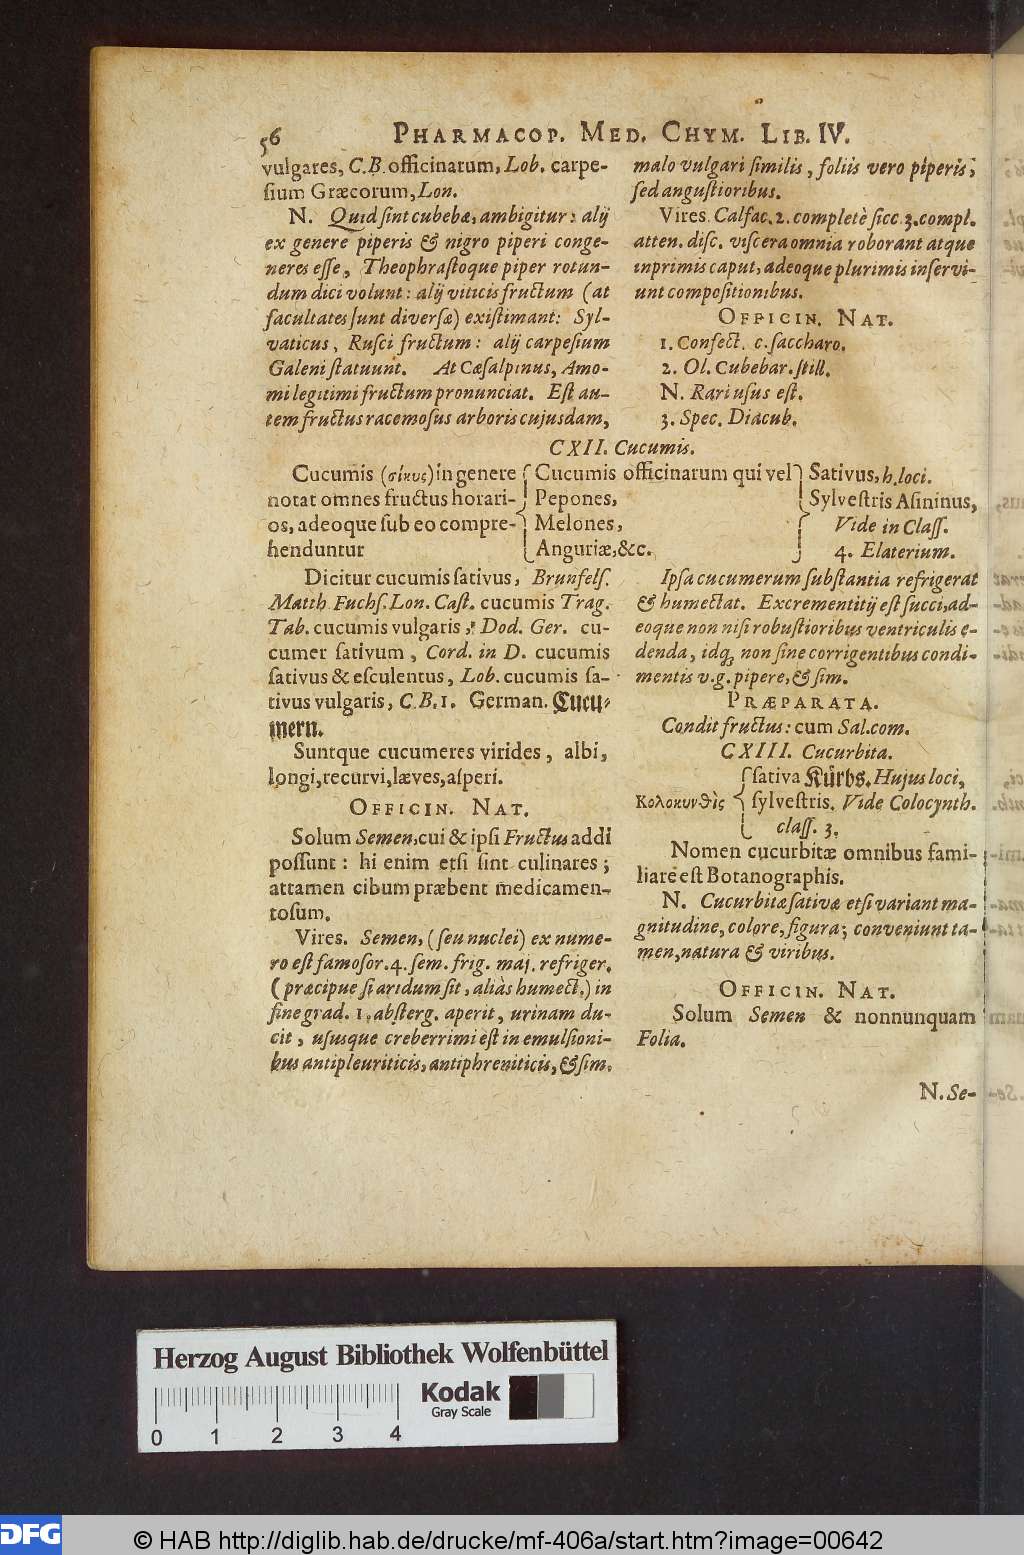 56 PHARMACOP. MED. CHYM. LIB. IV.
vulgares, C.B. officinarum, Lob. carpe-
ſium Græcorum, Lon.
N. Quid ſint cubebæ, ambigitur: alij
ex genere piperis & nigro piperi conge-
neres eſſe, Theophraſtoque piper rotun-
dum dici volunt: alij viticis fructum (at
facultates ſunt diverſæ) exiſtimant: Syl-
vaticus, Ruſci fructum: alij carpeſium
Galeni ſtatuunt. At Cæſalpinus, Amo-
mi legitimi fructum pronunciat. Eſt au-
tem fructus racemoſus arboris cujusdam,
malo vulgari ſimilis, foliis vero piperis,
ſed anguſtioribus.
Vires. Calfac. 2. completè ſicc. 3. compl.
atten. diſc. viſcera omnia roborant atque
inprimis caput, adeoque plurimis inſervi-
unt compoſitionibus.
OFFICIN. NAT.
1. Confect. c. ſaccharo.
2. Ol. Cubebar. ſtill.
N. Rari uſus eſt.
3. Spec. Diacub.
CXII. Cucumis.
Cucumis (σίκυς) in genere
notat omnes fructus horari-
os, adeoque ſub eo compre-
henduntur
Cucumis officinarum qui vel
Pepones,
Melones,
Anguriæ, &c.
Sativus, h. loci.
Sylveſtris Aſininus,
Vide in Claſſ.
4. Elaterium.
Dicitur cucumis ſativus, Brunfelſ.
Matth. Fuchſ. Lon. Caſt. cucumis Trag.
Tab. cucumis vulgaris, Dod. Ger. cu-
cumer ſativum, Cord. in D. cucumis
ſativus & eſculentus, Lob. cucumis ſa-
tivus vulgaris, C.B. 1. German. Cucu-
mern.
Suntque cucumeres virides, albi,
longi, recurvi, læves, aſperi.
OFFICIN. NAT.
Solum Semen, cui & ipſi Fructus addi
poſſunt: hi enim etſi ſint culinares;
attamen cibum præbent medicamen-
toſum.
Vires. Semen, (ſeu nuclei) ex nume-
ro eſt famoſor. 4. ſem. frig. maj. refriger.
(præcipue ſi aridum ſit, aliàs humect.) in
fine grad. 1. abſterg. aperit, urinam du-
cit, uſusque creberrimi eſt in emulſioni-
bus antipleuriticis, antiphreniticis, & ſim.
Ipſa cucumerum ſubſtantia refrigerat
& humectat. Excrementitij eſt ſucci, ad-
eoque non niſi robuſtioribus ventriculis e-
denda, idq; non ſine corrigentibus condi-
mentis v.g. pipere, & ſim.
PRÆPARATA.
Condit fructus: cum Sal. com.
CXIII. Cucurbita.
Κολοκυνθὶς
ſativa Kürbs. Hujus loci,
ſylveſtris. Vide Colocynth.
claſſ. 3.
Nomen cucurbitæ omnibus fami-
liare eſt Botanographis.
N. Cucurbitæ ſativæ etſi variant ma-
gnitudine, colore, figura; conveniunt ta-
men, natura & viribus.
OFFICIN. NAT.
Solum Semen & nonnunquam
Folia.
N. Se-
Herzog August Bibliothek Wolfenbüttel
Kodak
Gray Scale
0 1 2 3 4
DFG
© HAB http://diglib.hab.de/drucke/mf-406a/start.htm?image=00642